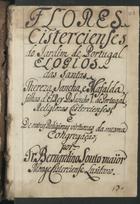 FLORES
Cistercienses
do Jardim de Portugal
ELOGIOS
das Santas
Thereza, Sancha, e Mafalda
filhas d'ElRey D. Sancho 1.º de Portugal
Religiosas Cistercienses
E
De outras Religiosas virtuosas da mesma
Congregação,
por
Fr. Bernardino Souto maior
Monge Cisterciense Lusitano